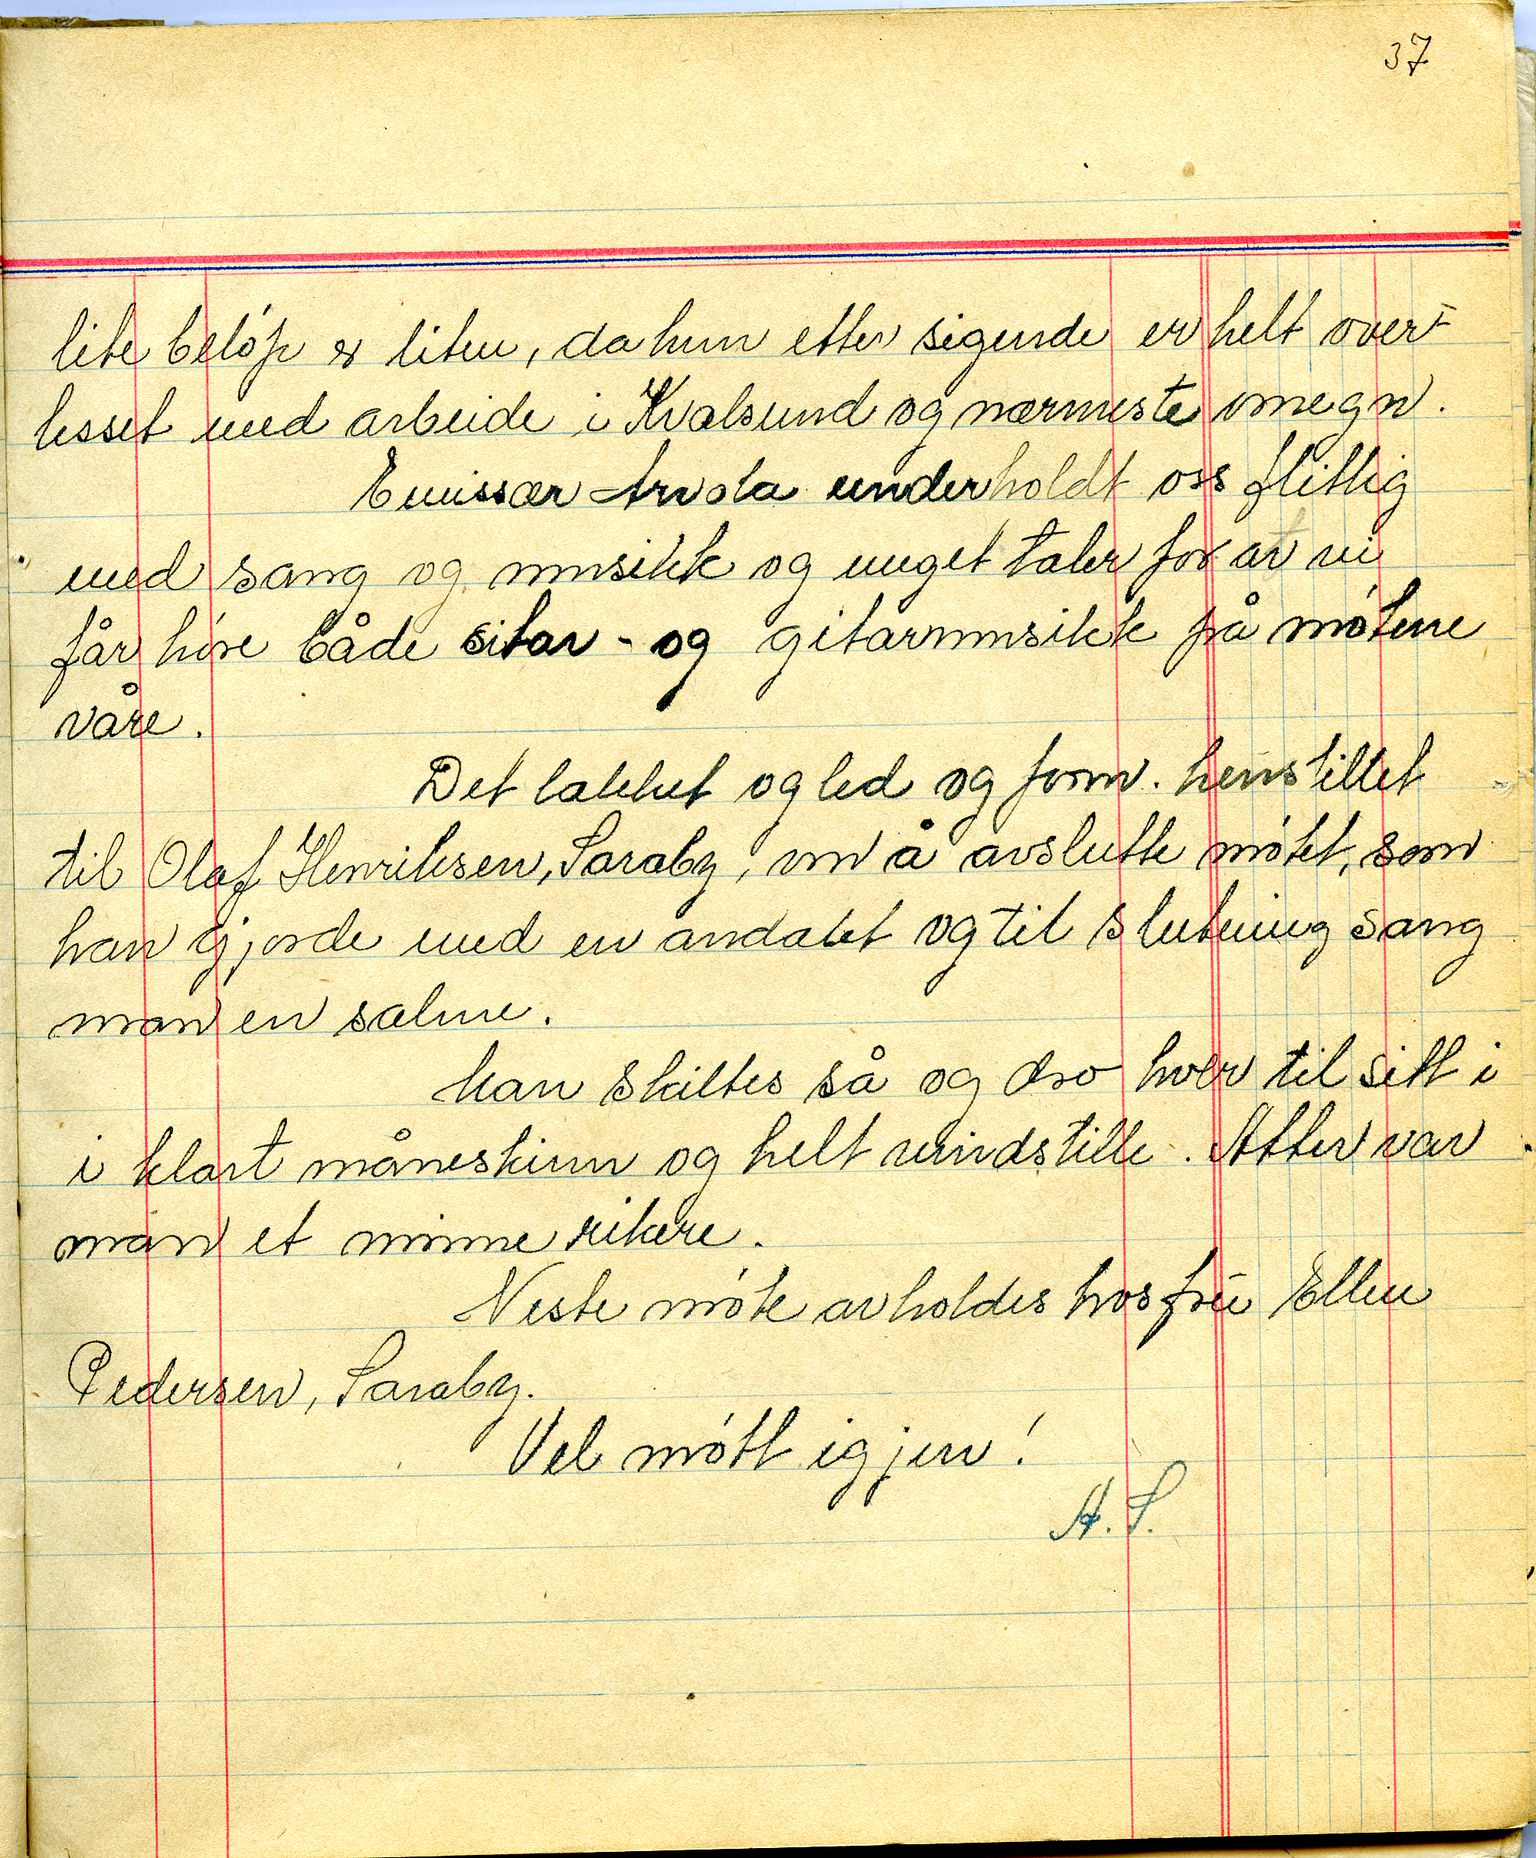 37
lite beløp er liten, da hun etter sigende er helt over-
lesset med arbeide i Kvalsund og nærmeste omegn.
Emissær Arvola underholdt oss flittig
med sang og musikk og meget taler for at vi
får høre både sitar- og gitarmusikk på møtene
våre.
Det lakket og led og form. henstillet
til Olaf Henriksen, Saraby, om å avslutte møtet, som
han gjorde med en andakt og til slutning sang
man en salme.
Man skiltes så og dro hver til sitt i
i klart måneskinn og helt vindstille. Atter var
man et minne rikere.
Neste møte avholdes hos fru Ellen
Pedersen, Saraby.
Vel møtt igjen!
A. S.